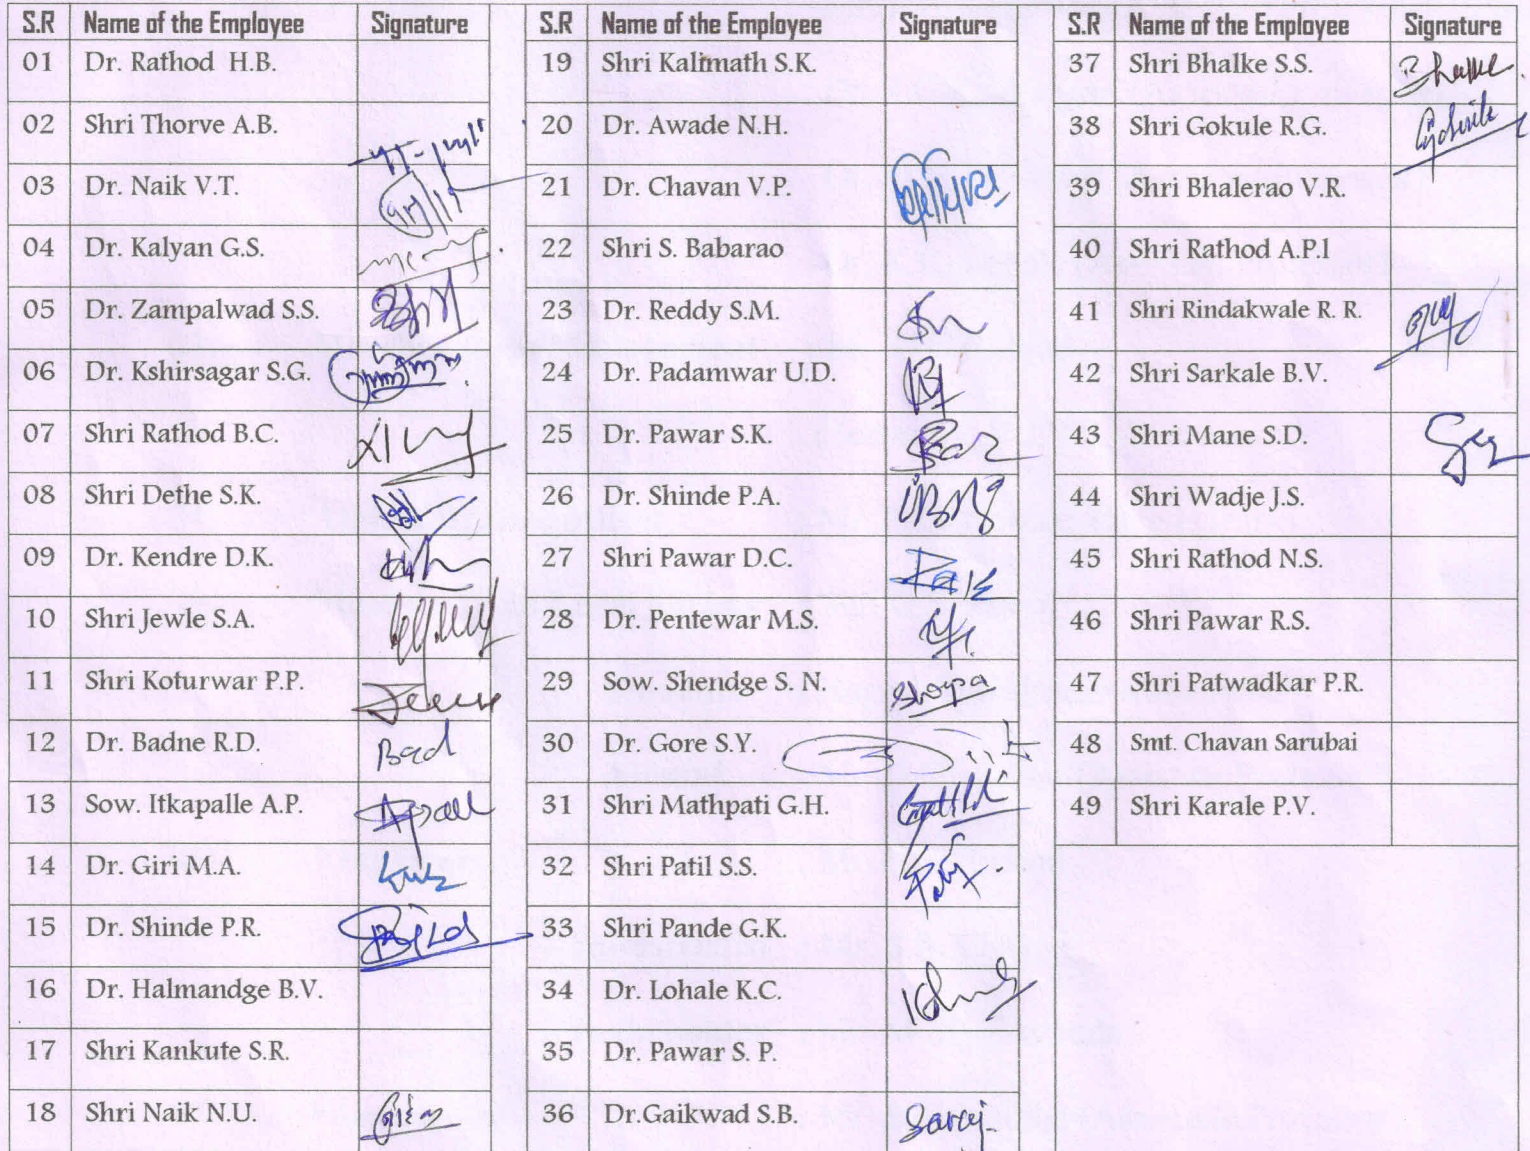 S.R Name of the Employee Signature
01 Dr. Rathod H.B.
02 Shri Thorve A.B.
03 Dr. Naik V.T.
04 Dr. Kalyan G.S.
05 Dr. Zampalwad S.S.
06 Dr. Kshirsagar S.G.
07 Shri Rathod B.C.
08 Shri Dethe S.K.
09 Dr. Kendre D.K.
10 Shri Jewle S.A.
11 Shri Koturwar P.P.
12 Dr. Badne R.D. Bad
13 Sow. Itkapalle A.P.
14 Dr. Giri M.A.
15 Dr. Shinde P.R.
16 Dr. Halmandge B.V.
17 Shri Kankute S.R.
18 Shri Naik N.U.
S.R Name of the Employee Signature
19 Shri Kalimath S.K.
20 Dr. Awade N.H.
21 Dr. Chavan V.P.
22 Shri S. Babarao
23 Dr. Reddy S.M.
24 Dr. Padamwar U.D.
25 Dr. Pawar S.K.
26 Dr. Shinde P.A.
27 Shri Pawar D.C.
28 Dr. Pentewar M.S.
29 Sow. Shendge S. N.
30 Dr. Gore S.Y.
31 Shri Mathpati G.H.
32 Shri Patil S.S.
33 Shri Pande G.K.
34 Dr. Lohale K.C.
35 Dr. Pawar S. P.
36 Dr.Gaikwad S.B.
S.R Name of the Employee Signature
37 Shri Bhalke S.S.
38 Shri Gokule R.G.
39 Shri Bhalerao V.R.
40 Shri Rathod A.P.l
41 Shri Rindakwale R. R.
42 Shri Sarkale B.V.
43 Shri Mane S.D.
44 Shri Wadje J.S.
45 Shri Rathod N.S.
46 Shri Pawar R.S.
47 Shri Patwadkar P.R.
48 Smt. Chavan Sarubai
49 Shri Karale P.V.